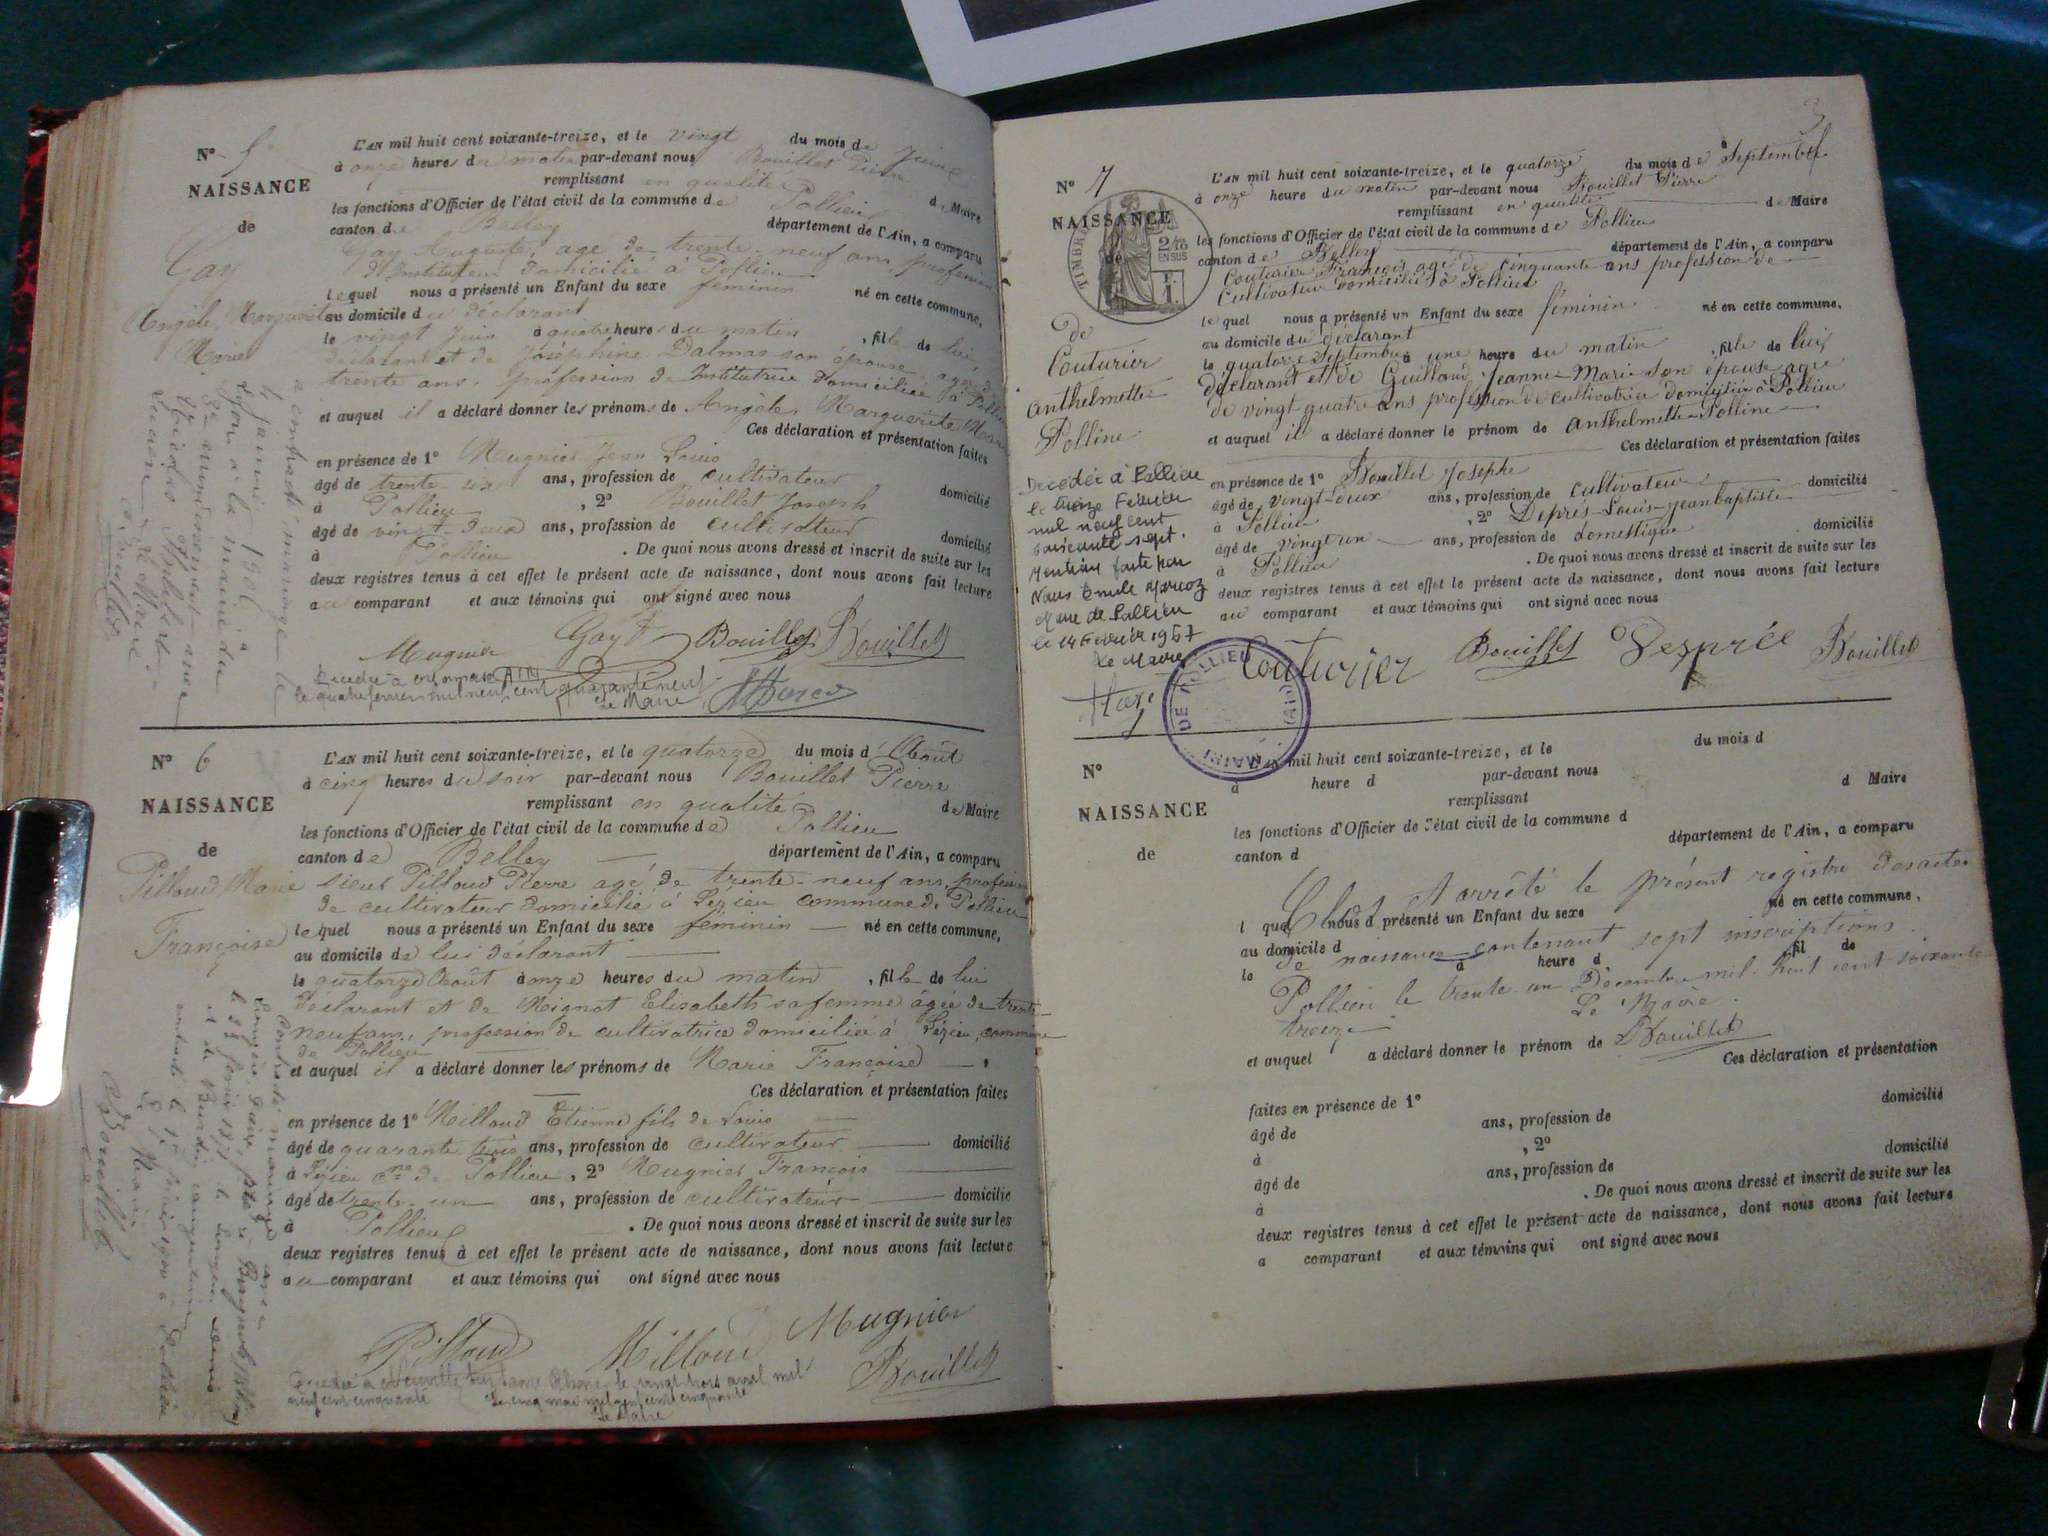 N° 5
NAISSANCE
de
Gay
Angèle, Marguerite
Marie
L'AN mil huit cent soixante-treize, et le vingt du mois de Juin
à onze heures du matin par-devant nous Bouillet Pierre
remplissant en qualité de Maire
les fonctions d'Officier de l'état civil de la commune de Pollieu
canton de Belley département de l'Ain, a comparu
Gay Auguste, agé de trente-neuf ans, profession
d'Instituteur domicilié à Pollieu
lequel nous a présenté un Enfant du sexe féminin né en cette commune,
au domicile du déclarant
le vingt Juin à quatre heures du matin, fille de lui,
déclarant et de Joséphine Dalmas son épouse, agée de
trente ans, profession de Institutrice domiciliée à Pollieu
et auquel il a déclaré donner les prénoms de Angèle, Marguerite Marie
Ces déclaration et présentation faites
en présence de 1° Mugnier Jean Louis
âgé de trente-six ans, profession de cultivateur domicilié
à Pollieu, 2° Bouillet Joseph
âgé de vingt-deux ans, profession de cultivateur domicilié
à Pollieu. De quoi nous avons dressé et inscrit de suite sur les
deux registres tenus à cet effet le présent acte de naissance, dont nous avons fait lecture
au comparant et aux témoins qui ont signé avec nous
Mugnier Gay Bouillet Bouillet
le quatre février mil neuf cent quarante neuf
Le Maire
a contracté mariage le
janvier 1901 à
à la mairie du
Le Maire
N° 6
NAISSANCE
de
Pilloud Marie
Françoise
L'AN mil huit cent soixante-treize, et le quatorze du mois d'Août
à cinq heures du soir par-devant nous Bouillet Pierre
remplissant en qualité de Maire
les fonctions d'Officier de l'état civil de la commune de Pollieu
canton de Belley département de l'Ain, a comparu
sieur Pilloud Pierre agé de trente-neuf ans, profession
de cultivateur domicilié à Lézieu commune de Pollieu
lequel nous a présenté un Enfant du sexe féminin né en cette commune,
au domicile de lui déclarant
le quatorze Août à onze heures du matin, fille de lui
déclarant et de Moignot Elisabeth sa femme âgée de trente-
neuf ans, profession de cultivatrice domiciliée à Lézieu, commune
de Pollieu
et auquel il a déclaré donner les prénoms de Marie Françoise
Ces déclaration et présentation faites
en présence de 1° Milloud Etienne fils de Louis
âgé de quarante trois ans, profession de cultivateur domicilié
à Lézieu Cne de Pollieu, 2° Mugnier François
âgé de trente-un ans, profession de cultivateur domicilié
à Pollieu. De quoi nous avons dressé et inscrit de suite sur les
deux registres tenus à cet effet le présent acte de naissance, dont nous avons fait lecture
au comparant et aux témoins qui ont signé avec nous
Pilloud Milloud Mugnier
Bouillet
le vingt trois avril mil
neuf cent cinquante Le cinq mai mil neuf cent cinquante
Le Maire
3
N° 7
NAISSANCE
TIMBRE
2/10
EN SUS
de
Couturier
Anthelmette
Polline
L'AN mil huit cent soixante-treize, et le quatorze du mois de Septembre
à onze heure du matin par-devant nous Bouillet Pierre
remplissant en qualité de Maire
les fonctions d'Officier de l'état civil de la commune de Pollieu
canton de Belley département de l'Ain, a comparu
Couturier François agé de cinquante ans profession de
Cultivateur domicilié à Pollieu
lequel nous a présenté un Enfant du sexe féminin né en cette commune,
au domicile du déclarant
le quatorze Septembre à une heure du matin, fille de lui
déclarant et de Guilland Jeanne-Marie son épouse agée
de vingt quatre ans profession de cultivatrice domiciliée à Pollieu
et auquel il a déclaré donner le prénom de Anthelmette-Polline
Ces déclaration et présentation faites
en présence de 1° Bouillet Josephe
âgé de vingt-deux ans, profession de Cultivateur domicilié
à Pollieu, 2° Deprés-Louis-Jean baptiste
âgé de vingt un ans, profession de domestique domicilié
à Pollieu. De quoi nous avons dressé et inscrit de suite sur les
deux registres tenus à cet effet le présent acte de naissance, dont nous avons fait lecture
au comparant et aux témoins qui ont signé avec nous
Couturier Bouillet Desprée Bouillet
Décédée à Pollieu
le treize Février
mil neuf cent
soixante sept.
Mention faite par
Nous Emile Marcoz
Maire de Pollieu
le 14 Février 1967
Le Maire
MAIRIE DE POLLIEU (AIN)
N°
NAISSANCE
de
L'AN mil huit cent soixante-treize, et le du mois d
à heure d par-devant nous
remplissant d Maire
les fonctions d'Officier de l'état civil de la commune d
canton d département de l'Ain, a comparu
Clos et arrêté le présent registre des actes
l quel nous a présenté un Enfant du sexe né en cette commune,
au domicile d
de naissance contenant sept inscriptions.
le à heure d fil de
Pollieu le trente-un Décembre mil-huit cent soixante
treize Le Maire.
Bouillet
et auquel a déclaré donner le prénom de
Ces déclaration et présentation
faites en présence de 1°
âgé de ans, profession de domicilié
à , 2°
âgé de ans, profession de domicilié
à . De quoi nous avons dressé et inscrit de suite sur les
deux registres tenus à cet effet le présent acte de naissance, dont nous avons fait lecture
a comparant et aux témoins qui ont signé avec nous